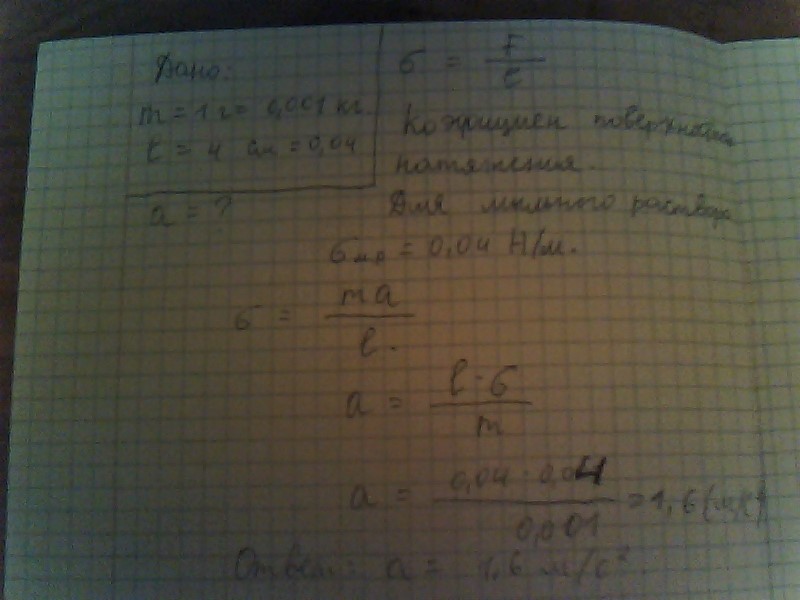 Дано:
m = 1 г = 0,001 кг.
l = 4 см = 0,04
a = ?
σ = F / l
Коэфициен поверхностного
натяжения.
Для мыльного раствора
σ м.р = 0,04 Н/м.
σ = ma / l.
a = l · σ / m
a = 0,04 · 0,04 / 0,001 = 1,6 (м/с²)
Ответ: a = 1,6 м/с².